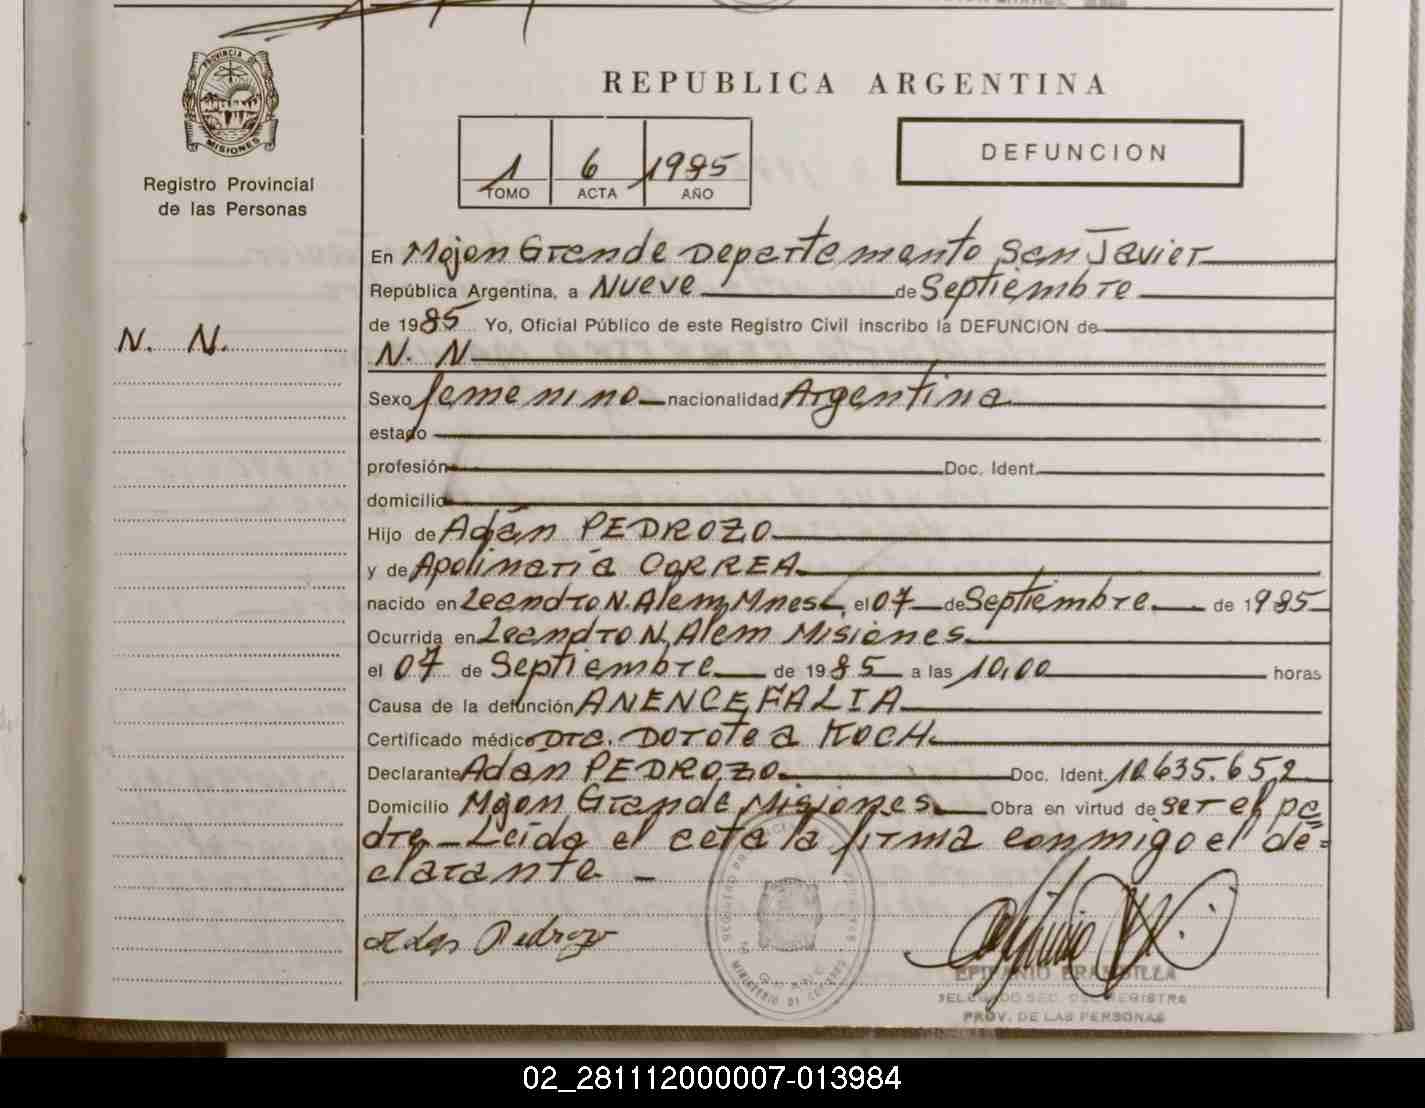 PROVINCIA DE
MISIONES
Registro Provincial
de las Personas
REPUBLICA ARGENTINA
1 6 1985
TOMO ACTA AÑO
DEFUNCION
En Mojon Grande Departamento San Javier
República Argentina, a Nueve de Septiembre
de 1985 Yo, Oficial Público de este Registro Civil inscribo la DEFUNCION de
N. N.
N. N
Sexo femenino nacionalidad Argentina
estado
profesión Doc. Ident.
domicilio
Hijo de Adán PEDROZO
y de Apolinaria CORREA
nacido en Leandro N. Alem, Mnes, el 07 de Septiembre de 1985
Ocurrida en Leandro N, Alem Misiones
el 07 de Septiembre de 1985 a las 10,00 horas
Causa de la defunción ANENCEFALIA
Certificado médico Dra. Dorotea KOCH.
Declarante Adán PEDROZO Doc. Ident. 10.635.652
Domicilio Mojon Grande Misiones Obra en virtud de ser el pa=
dre - Leida el acta la firma conmigo el de=
clarante -
Pedrozo
EPIFANIO BRAMBILLA
DELEGADO SEC. DEL REGISTRO
PROV. DE LAS PERSONAS
02_281112000007-013984